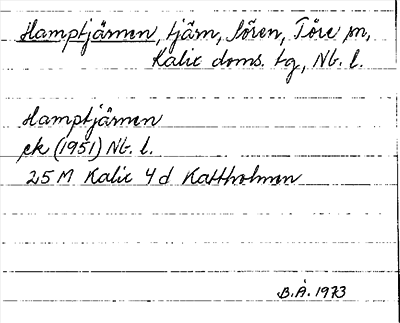 Hamptjärnen, tjärn, Sören, Töre sn,
Kalix doms. tg, Nb. l.
Hamptjärnen
ek (1951) Nb. l.
25 M Kalix 4 d Kattholmen
B.Å. 1973